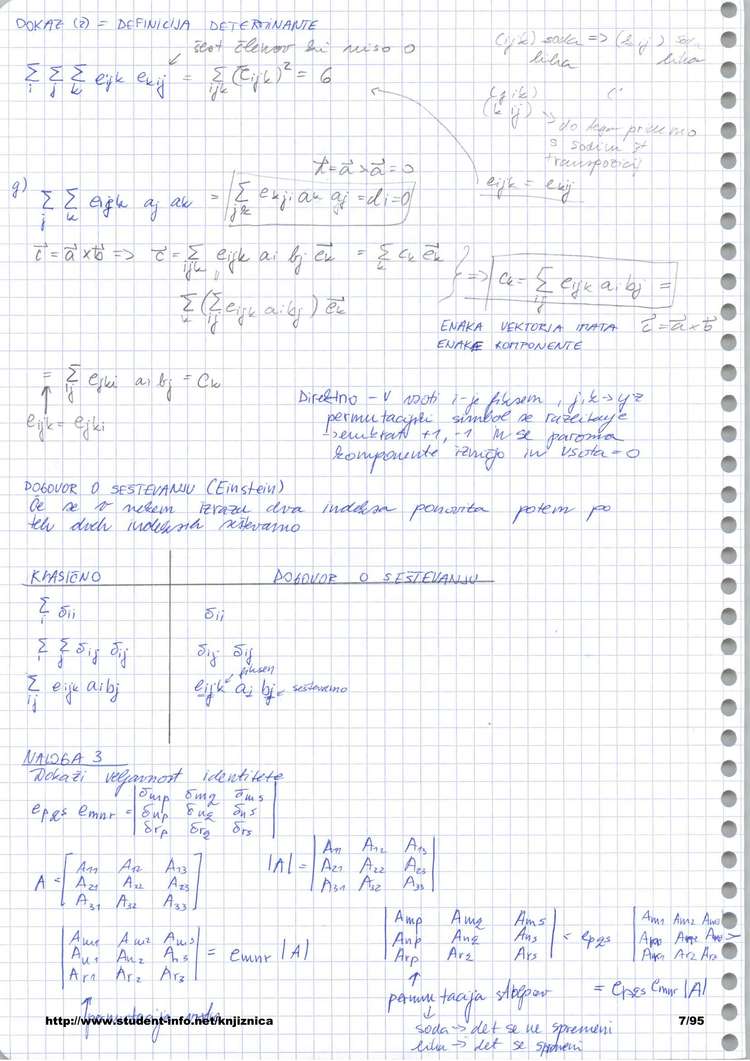 DOKAZ (2) = DEFINICIJA DETERMINANTE
šest členov ki niso 0
(ijk) soda => (kij) soda
liha liha
∑i ∑j ∑k eijk ekij = ∑ijk (eijk)² = 6
(ijk)
(kij) -> do tega pridemo
s sodim #
transpozicij
eijk = ekij
d⃗ = a⃗ × a⃗ = 0
g) ∑j ∑k eijk aj ak = ∑jk ekji ak aj = di = 0
c⃗ = a⃗ × b⃗ => c⃗ = ∑ijk eijk ai bj e⃗k = ∑k ck e⃗k
∑k (∑ij eijk ai bj) e⃗k
=> ck = ∑ij eijk ai bj =
ENAKA VEKTORJA IMATA c⃗ = a⃗ × b⃗
ENAKE KOMPONENTE
= ∑ij ejki ai bj = ck
eijk = ejki
Direktno - v vsoti i-je fiksen, j,k -> yz
permutacijski simbol se
+1, -1 in se paroma
komponente in vsota = 0
DOGOVOR O SEŠTEVANJU (Einstein)
Če se v nekem izrazu dva indeksa ponovita potem po
teh dveh indeksih seštevamo
KLASIČNO DOGOVOR O SEŠTEVANJU
∑i δii δii
∑i ∑j δij δij δij δij
fiksen
∑ij eijk ai bj eijk ai bj <- seštevamo
NALOGA 3
Dokaži veljavnost identitete
epqs emnr = | δmp δmq δms |
| δnp δnq δns |
| δrp δrq δrs |
A = [ A11 A12 A13 ]
[ A21 A22 A23 ]
[ A31 A32 A33 ]
|A| = | A11 A12 A13 |
| A21 A22 A23 |
| A31 A32 A33 |
| Am1 Am2 Am3 |
| An1 An2 An3 | = emnr |A|
| Ar1 Ar2 Ar3 |
| Amp Amq Ams |
| Anp Anq Ans | = epqs
| Arp Arq Ars |
| Am1 Am2 Am3 |
Ar2 Ar3 |
permutacija stolpcev = epqs emnr |A|
permutacija
soda -> det se ne spremeni
liha -> det se spremeni
http://www.student-info.net/knjiznica
7/95